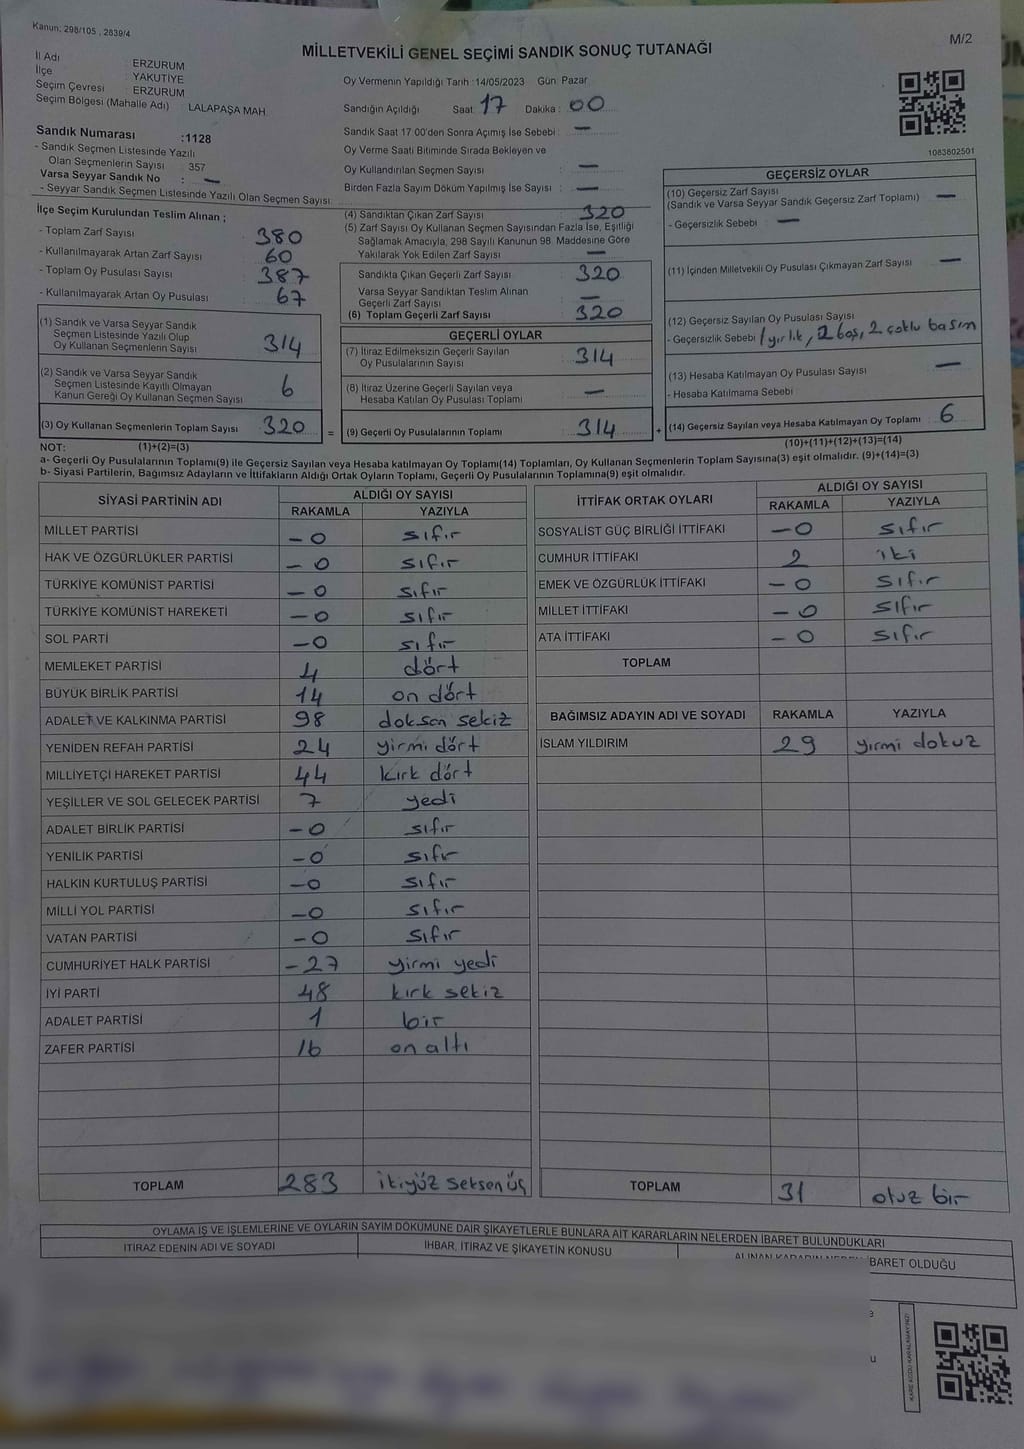 Kanun, 298/105 , 2839/4
M/2
MİLLETVEKİLİ GENEL SEÇİMİ SANDIK SONUÇ TUTANAĞI
İl Adı ERZURUM
İlçe : YAKUTİYE
Seçim Çevresi : ERZURUM
Seçim Bölgesi (Mahalle Adı) : LALAPAŞA MAH.
Sandık Numarası :1128
- Sandık Seçmen Listesinde Yazılı
Olan Seçmenlerin Sayısı : 357
Varsa Seyyar Sandık No : —
- Seyyar Sandık Seçmen Listesinde Yazılı Olan Seçmen Sayısı:
Oy Vermenin Yapıldığı Tarih :14/05/2023 Gün: Pazar
Sandığın Açıldığı Saat: 17 Dakika : 00
Sandık Saat 17:00'den Sonra Açımış İse Sebebi : —
Oy Verme Saati Bitiminde Sırada Bekleyen ve
Oy Kullandırılan Seçmen Sayısı : —
Birden Fazla Sayım Döküm Yapılmış İse Sayısı : —
1083802501
İlçe Seçim Kurulundan Teslim Alınan ;
- Toplam Zarf Sayısı 380
- Kullanılmayarak Artan Zarf Sayısı 60
- Toplam Oy Pusulası Sayısı 387
- Kullanılmayarak Artan Oy Pusulası 67
(1) Sandık ve Varsa Seyyar Sandık
Seçmen Listesinde Yazılı Olup
Oy Kullanan Seçmenlerin Sayısı 314
(2) Sandık ve Varsa Seyyar Sandık
Seçmen Listesinde Kayıtlı Olmayan
Kanun Gereği Oy Kullanan Seçmen Sayısı 6
(3) Oy Kullanan Seçmenlerin Toplam Sayısı 320 =
(4) Sandıktan Çıkan Zarf Sayısı : 320
(5) Zarf Sayısı Oy Kullanan Seçmen Sayısından Fazla İse, Eşitliği
Sağlamak Amacıyla, 298 Sayılı Kanunun 98. Maddesine Göre
Yakılarak Yok Edilen Zarf Sayısı —
Sandıkta Çıkan Geçerli Zarf Sayısı 320
Varsa Seyyar Sandıktan Teslim Alınan
Geçerli Zarf Sayısı —
(6) Toplam Geçerli Zarf Sayısı 320
GEÇERLİ OYLAR
(7) İtiraz Edilmeksizin Geçerli Sayılan
Oy Pusulalarının Sayısı 314
(8) İtiraz Üzerine Geçerli Sayılan veya
Hesaba Katılan Oy Pusulası Toplamı —
(9) Geçerli Oy Pusulalarının Toplamı 314 +
GEÇERSİZ OYLAR
(10) Geçersiz Zarf Sayısı
(Sandık ve Varsa Seyyar Sandık Geçersiz Zarf Toplamı) —
- Geçersizlik Sebebi : —
(11) İçinden Milletvekili Oy Pusulası Çıkmayan Zarf Sayısı —
(12) Geçersiz Sayılan Oy Pusulası Sayısı
- Geçersizlik Sebebi 2 boş, 2 çoklu basım
(13) Hesaba Katılmayan Oy Pusulası Sayısı —
- Hesaba Katılmama Sebebi
(14) Geçersiz Sayılan veya Hesaba Katılmayan Oy Toplamı 6
NOT: (1)+(2)=(3) (10)+(11)+(12)+(13)=(14)
a- Geçerli Oy Pusulalarının Toplamı(9) ile Geçersiz Sayılan veya Hesaba katılmayan Oy Toplamı(14) Toplamları, Oy Kullanan Seçmenlerin Toplam Sayısına(3) eşit olmalıdır. (9)+(14)=(3)
b- Siyasi Partilerin, Bağımsız Adayların ve İttifakların Aldığı Ortak Oyların Toplamı, Geçerli Oy Pusulalarının Toplamına(9) eşit olmalıdır.
SİYASİ PARTİNİN ADI ALDIĞI OY SAYISI
RAKAMLA YAZIYLA
MİLLET PARTİSİ – 0 sıfır
HAK VE ÖZGÜRLÜKLER PARTİSİ – 0 sıfır
TÜRKİYE KOMÜNİST PARTİSİ – 0 sıfır
TÜRKİYE KOMÜNİST HAREKETİ – 0 sıfır
SOL PARTİ – 0 sıfır
MEMLEKET PARTİSİ 4 dört
BÜYÜK BİRLİK PARTİSİ 14 on dört
ADALET VE KALKINMA PARTİSİ 98 doksan sekiz
YENİDEN REFAH PARTİSİ 24 yirmi dört
MİLLİYETÇİ HAREKET PARTİSİ 44 kırk dört
YEŞİLLER VE SOL GELECEK PARTİSİ 7 yedi
ADALET BİRLİK PARTİSİ – 0 sıfır
YENİLİK PARTİSİ – 0 sıfır
HALKIN KURTULUŞ PARTİSİ – 0 sıfır
MİLLİ YOL PARTİSİ – 0 sıfır
VATAN PARTİSİ – 0 sıfır
CUMHURİYET HALK PARTİSİ – 27 yirmi yedi
İYİ PARTİ 48 kırk sekiz
ADALET PARTİSİ 1 bir
ZAFER PARTİSİ 16 on altı
TOPLAM 283 ikiyüz seksen üç
İTTİFAK ORTAK OYLARI ALDIĞI OY SAYISI
RAKAMLA YAZIYLA
SOSYALİST GÜÇ BİRLİĞİ İTTİFAKI – 0 sıfır
CUMHUR İTTİFAKI 2 iki
EMEK VE ÖZGÜRLÜK İTTİFAKI – 0 sıfır
MİLLET İTTİFAKI – 0 sıfır
ATA İTTİFAKI – 0 sıfır
TOPLAM
BAĞIMSIZ ADAYIN ADI VE SOYADI RAKAMLA YAZIYLA
İSLAM YILDIRIM 29 yirmi dokuz
TOPLAM 31 otuz bir
OYLAMA İŞ VE İŞLEMLERİNE VE OYLARIN SAYIM DÖKÜMÜNE DAİR ŞİKAYETLERLE BUNLARA AİT KARARLARIN NELERDEN İBARET BULUNDUKLARI
İTİRAZ EDENİN ADI VE SOYADI İHBAR, İTİRAZ VE ŞİKAYETİN KONUSU ALINAN KARARIN NEDEN İBARET OLDUĞU
KARE KODU KARALAMAYINIZ!